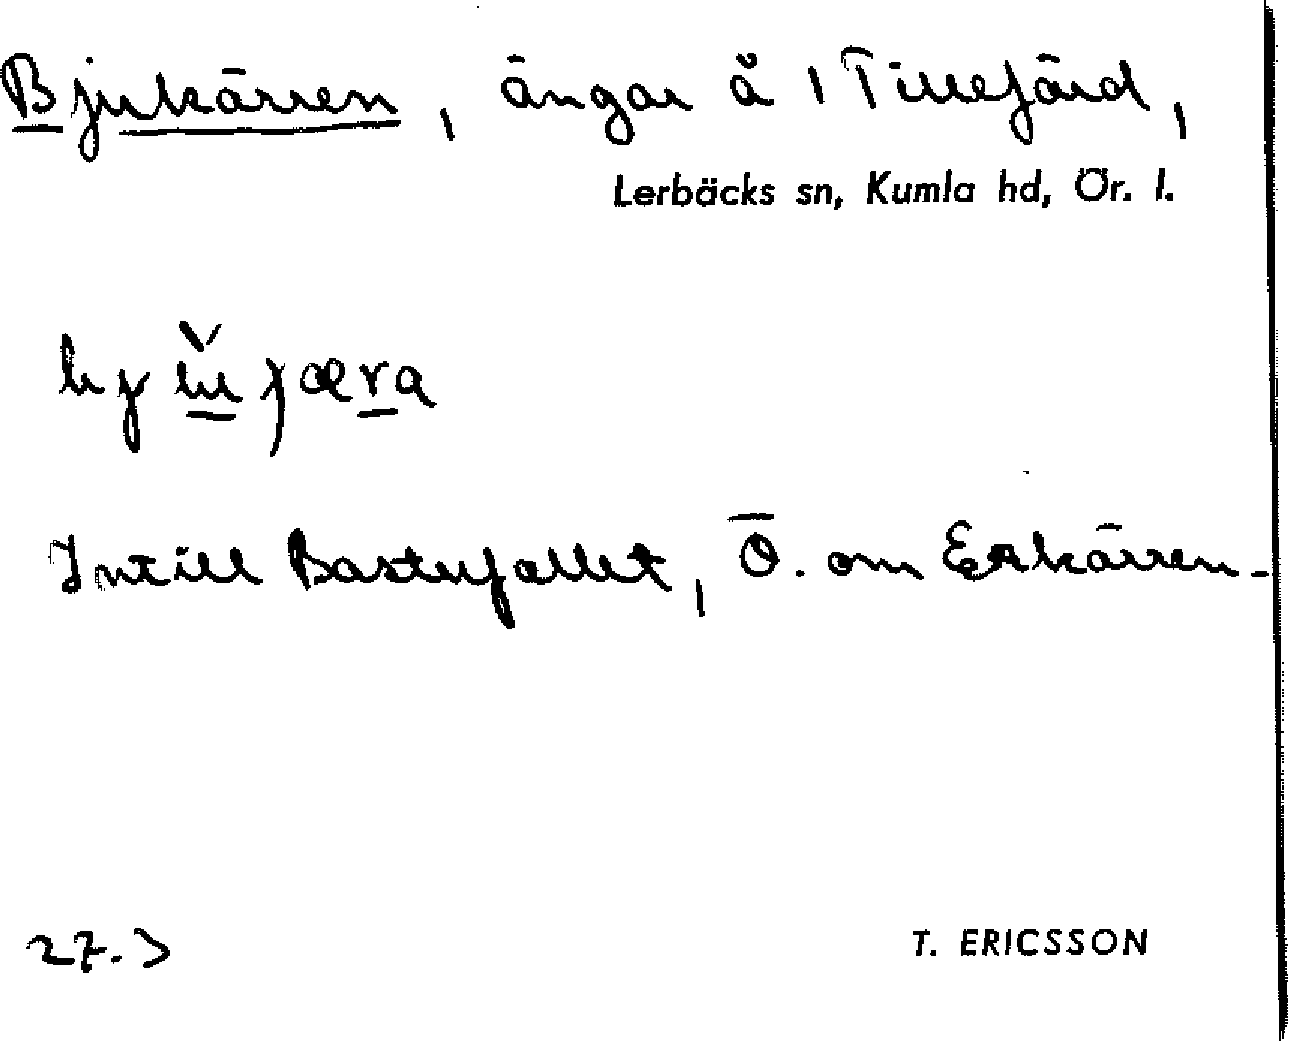 Bjukärren, ängar å 1 Tillefärd,
Lerbäcks sn, Kumla hd, Ör. l.
Intill Bastufallet, Ö. om Erkärren-
27.
T. ERICSSON